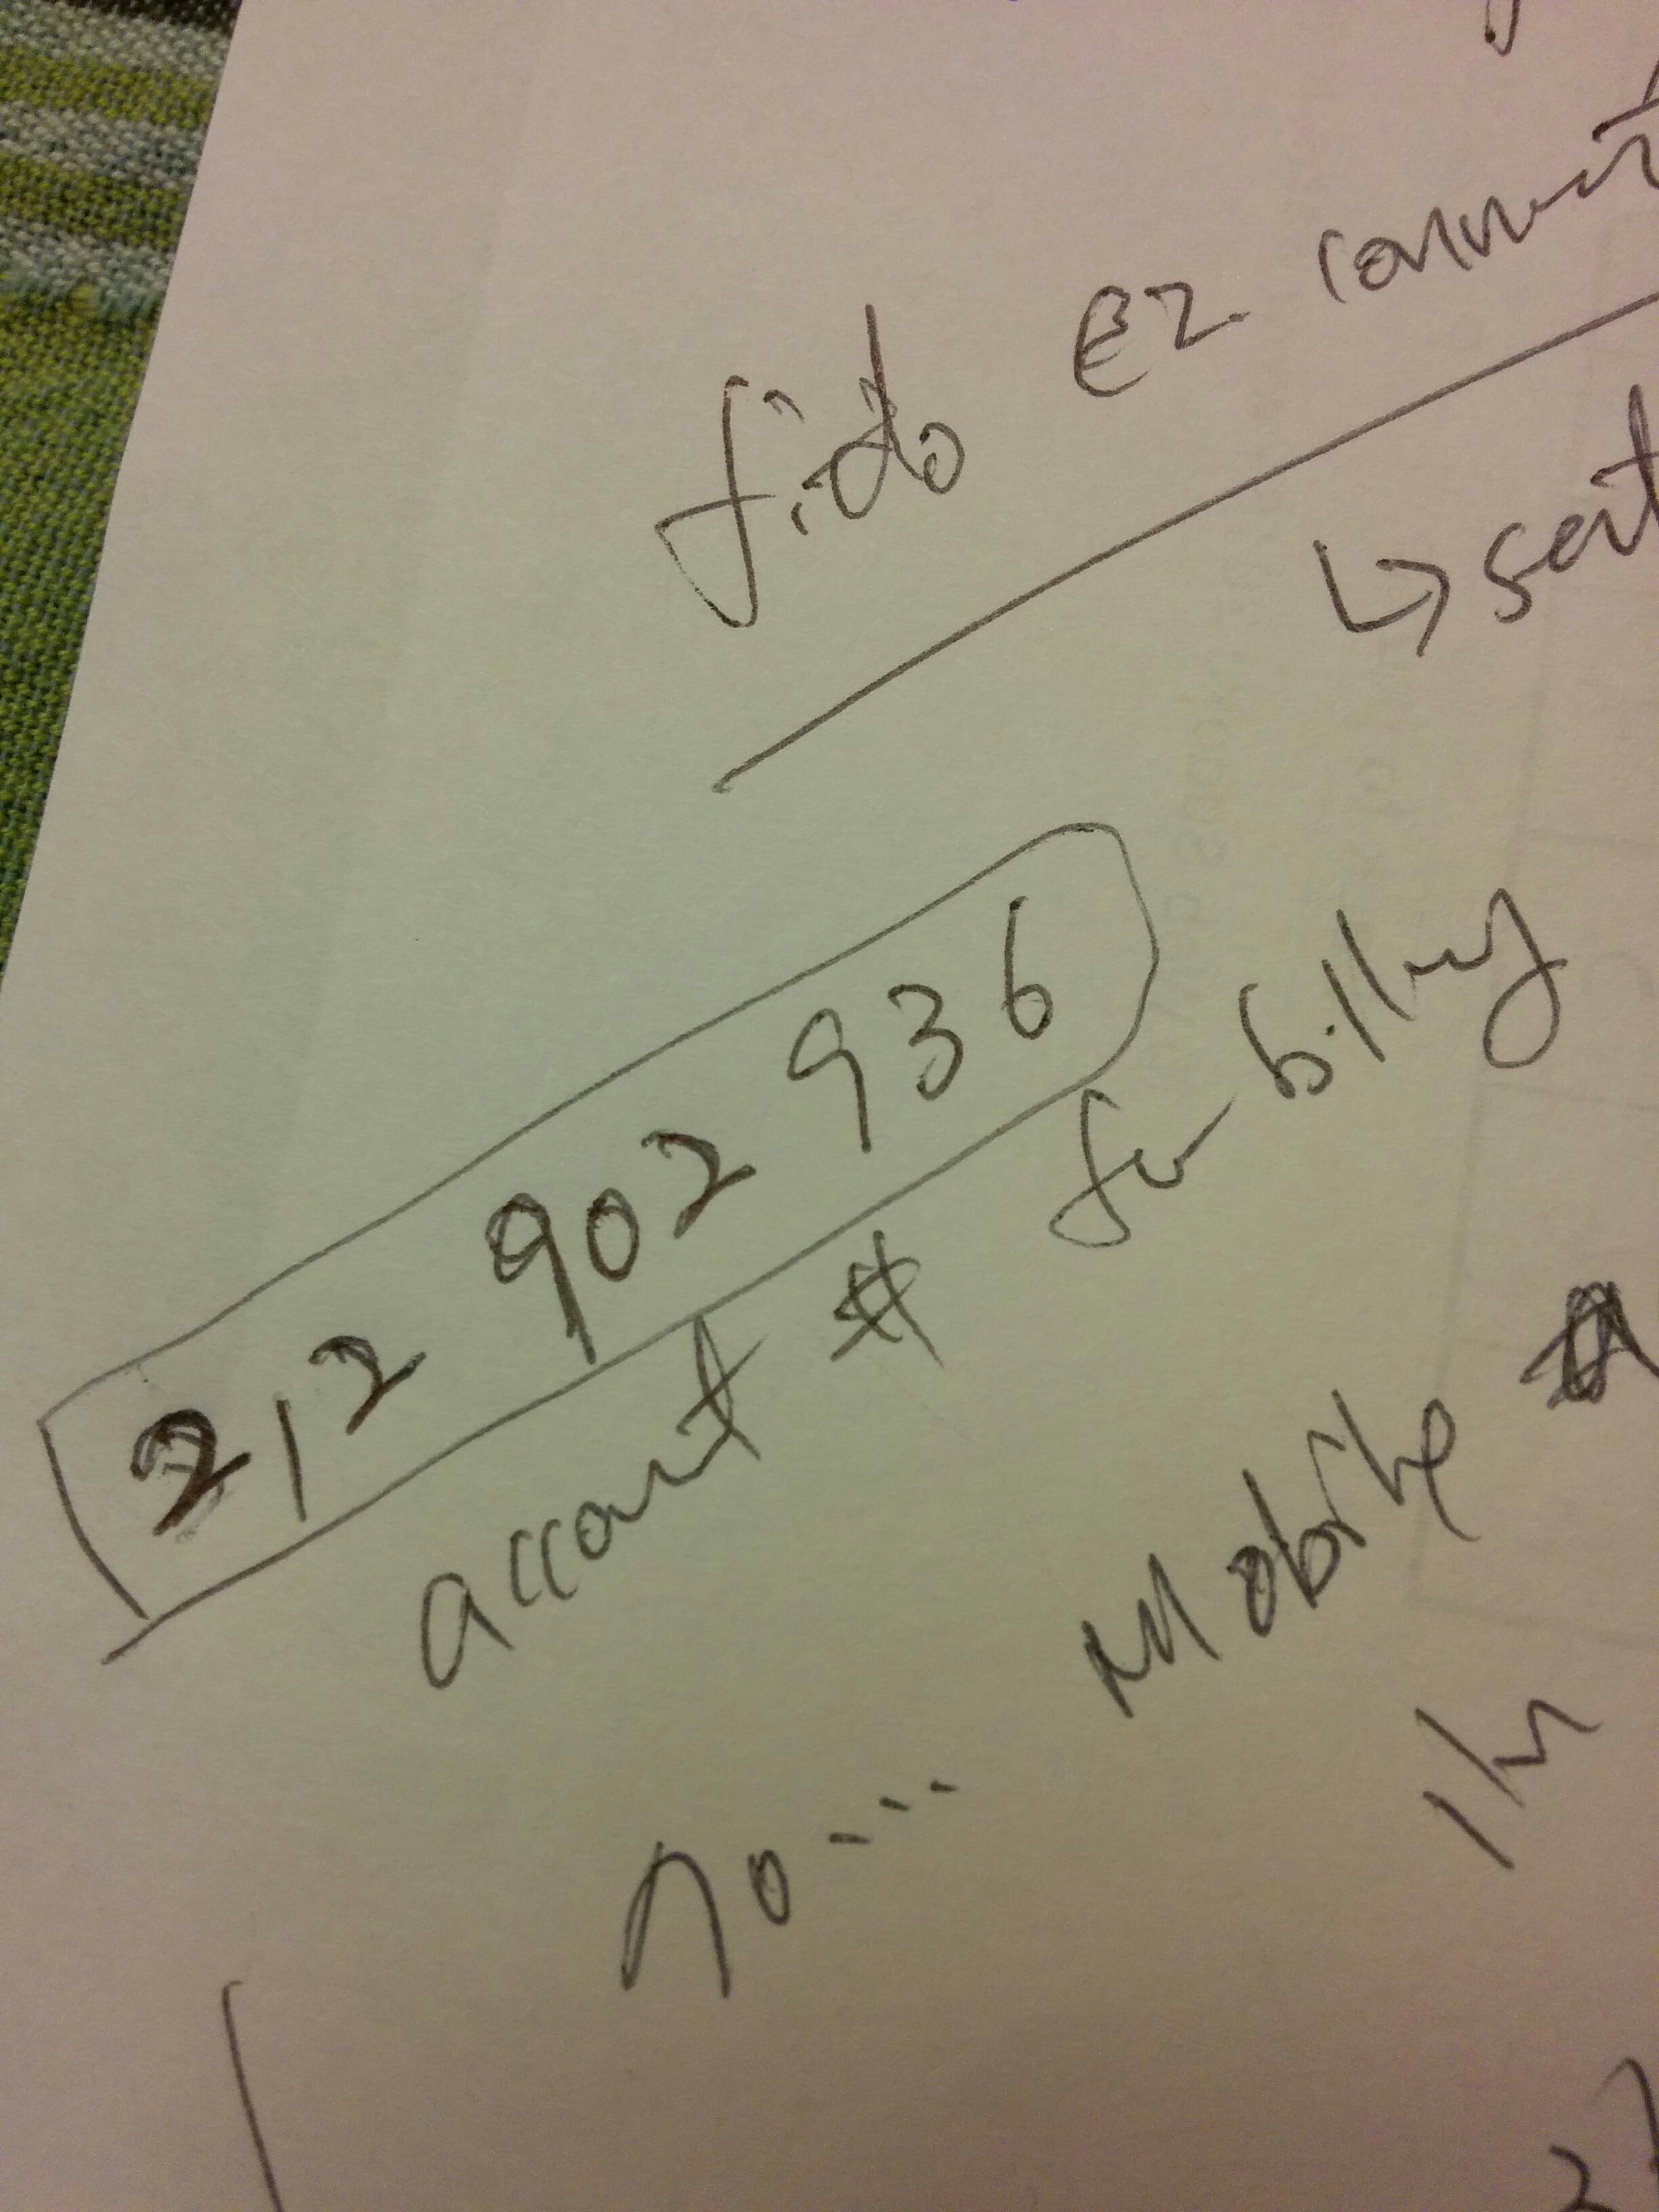 fido EZ connect
↳ sent
212 902 936
account # for billing
no... Mobile #
1hr